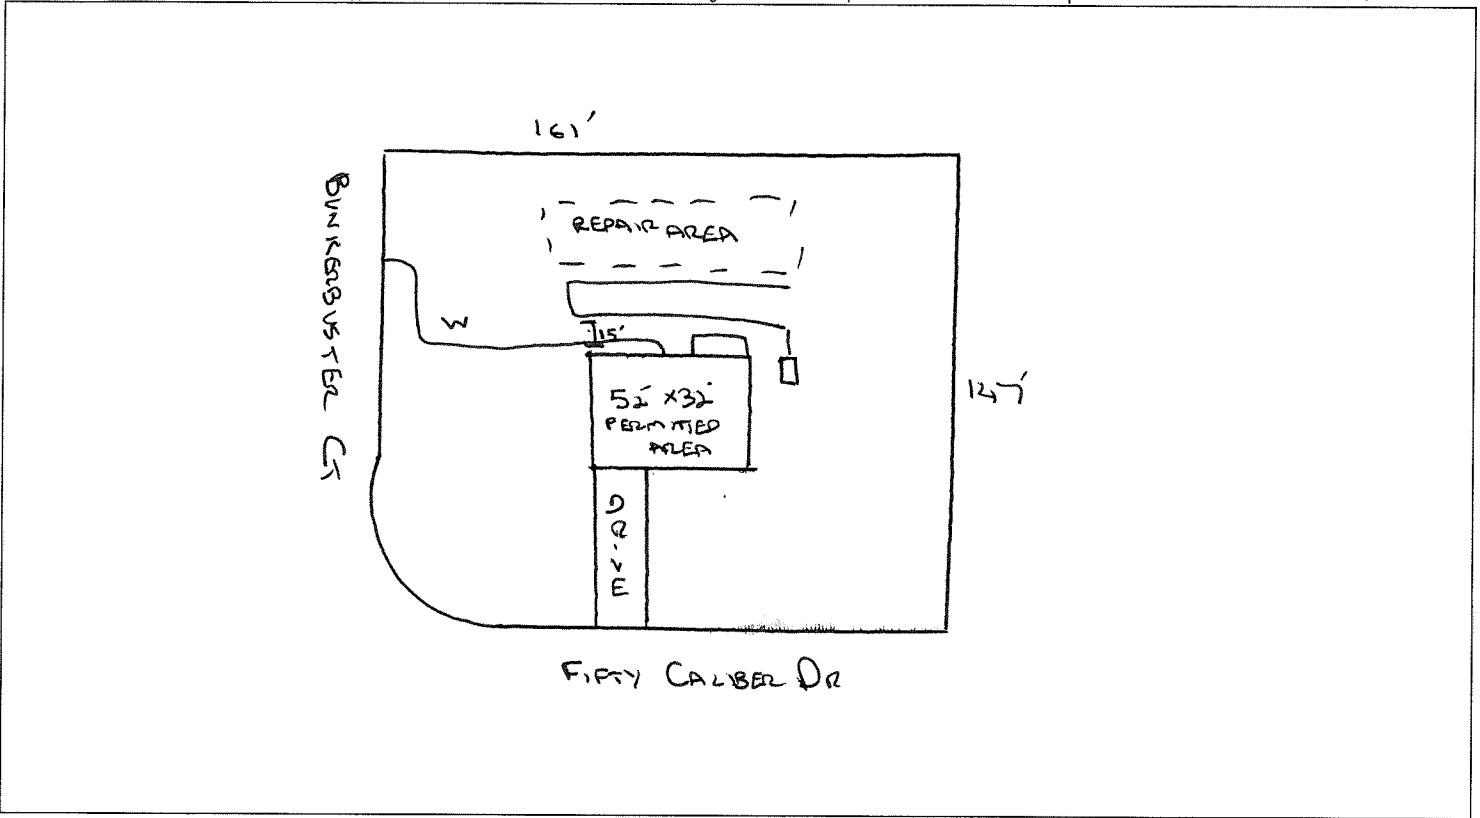 161'
BUNKERBUSTER CT
REPAIR AREA
W
15'
52' x 32'
PERMITTED
AREA
127'
DRIVE
FIFTY CALIBER DR